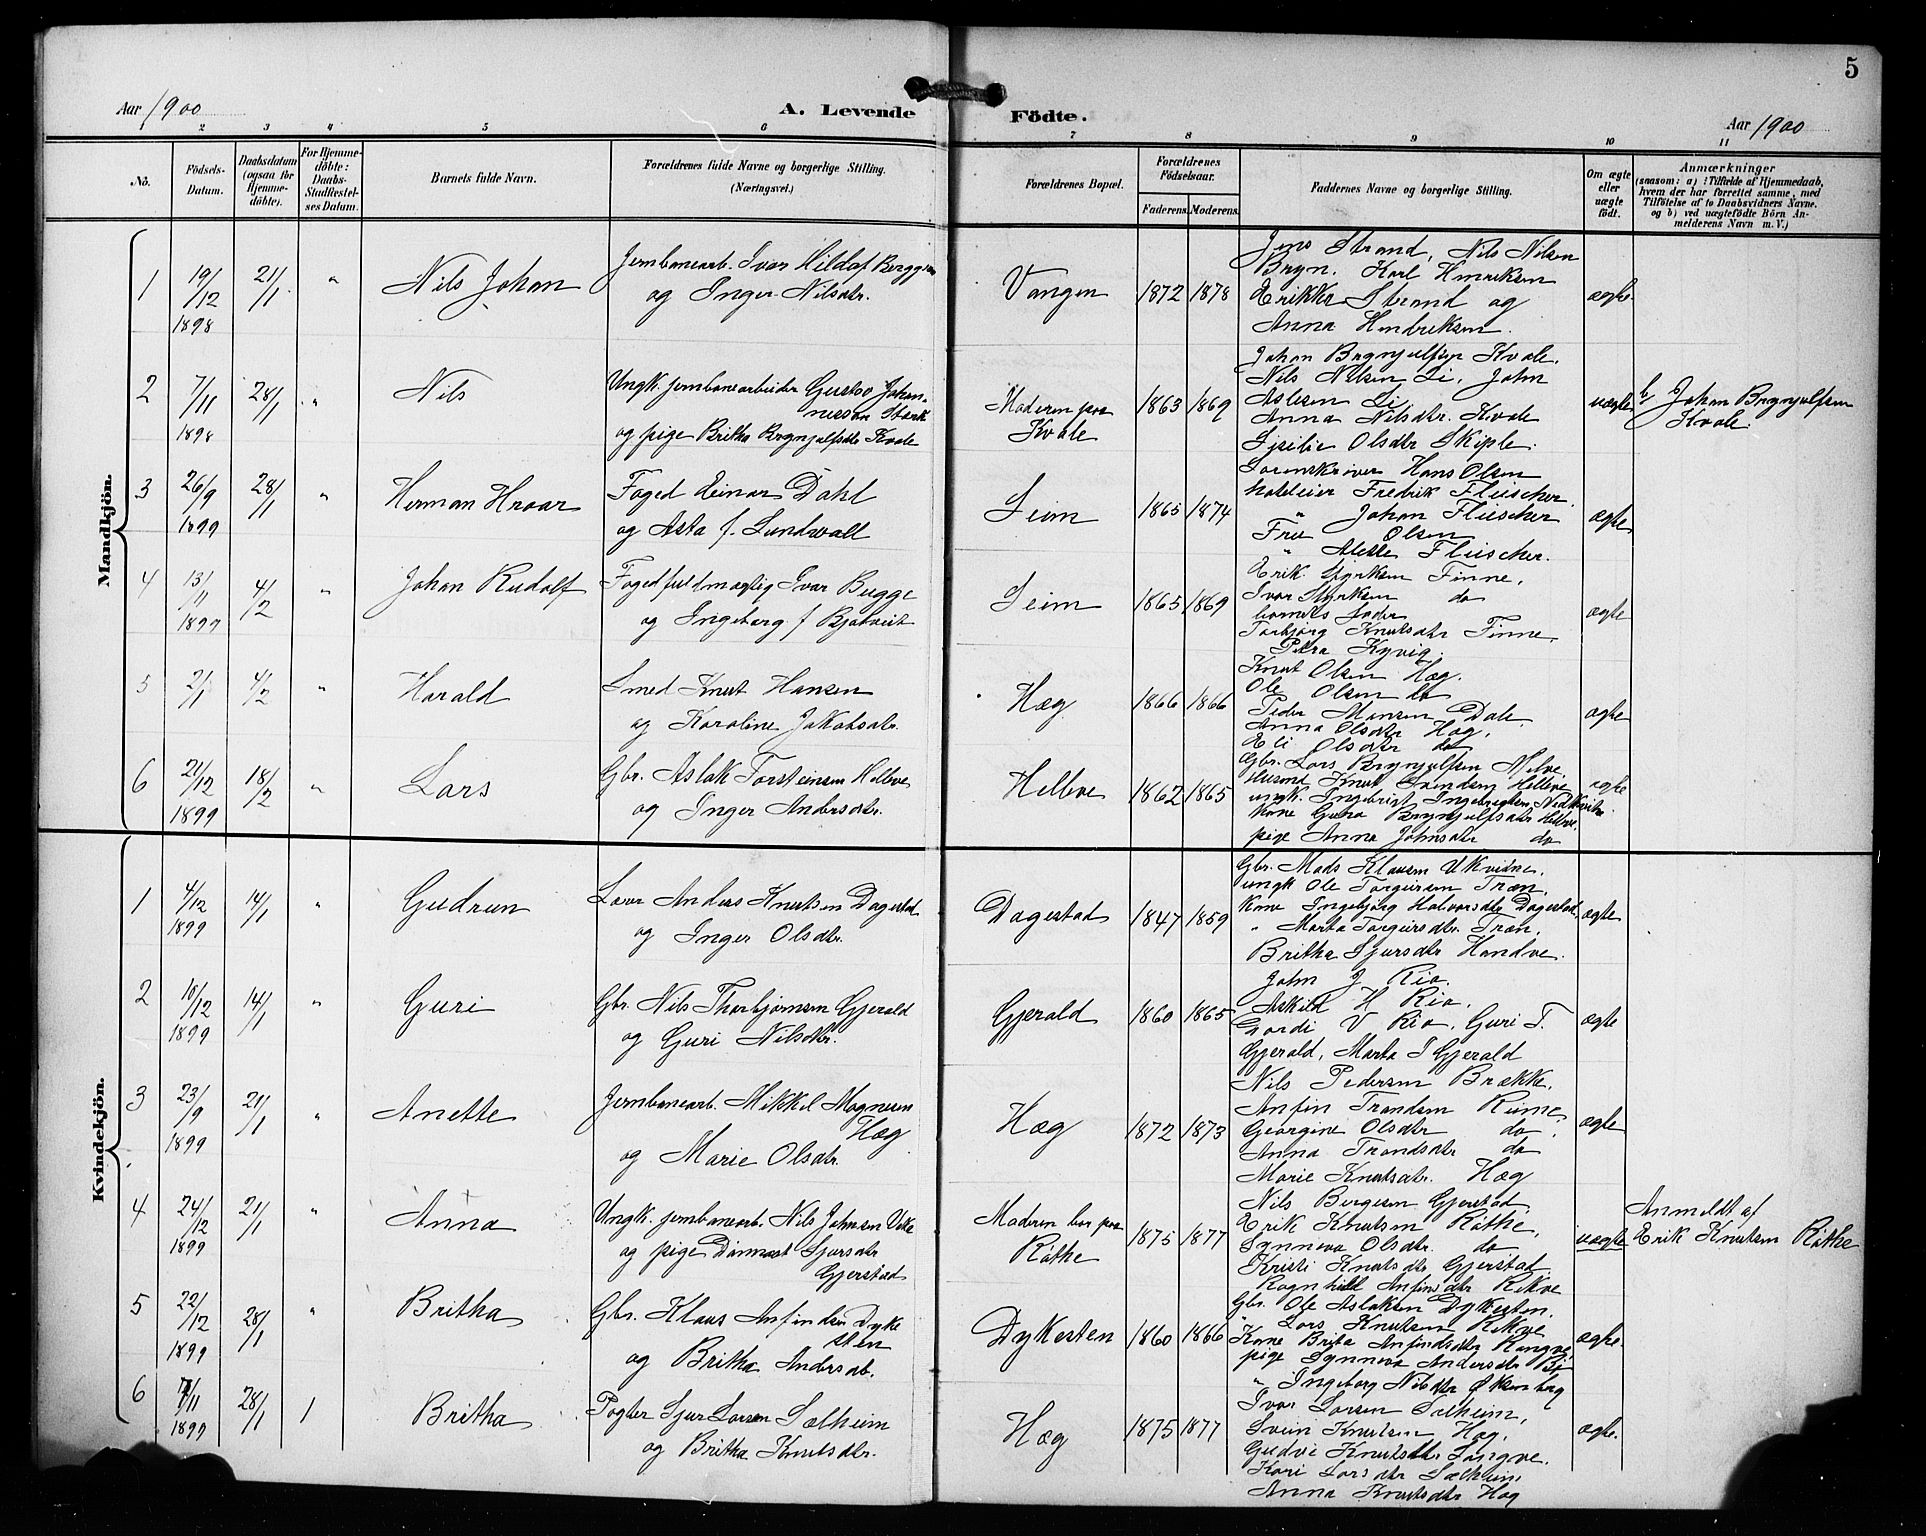 5
Aar 1900
A. Levende
Födte.
Aar 1900
1 2 3 4 5 6 7 8 9 10 11
No.
Födsels-
Datum.
Daabsdatum
(ogsaa for
Hjemme-
döbte).
For Hjemme-
döbte:
Daabs-
Stadfæstel-
ses Datum.
Barnets fulde Navn.
Forældrenes fulde Navne og borgerlige Stilling.
(Næringsvei.)
Forældrenes Bopæl.
Forældrenes
Födselsaar.
Faderens. Moderens.
Faddernes Navne og borgerlige Stilling.
Om ægte
eller
uægte
födt.
Anmærkninger
(saasom: a) i Tilfælde af Hjemmedaab,
hvem der har forrettet samme, med
Tilföielse af to Daabsvidners Navne,
og b) ved uægtefödte Börn An-
melderens Navn m. V.)
Mandkjön.
1 19/12 1898 21/1 " Nils Johan
Jernbanearb. Ivar Hildof Berggren
og Inger Nilsdtr.
Vangen 1872 1878
Jens Strand, Nils Nilsen
Bryn, Karl Henriksen
Erikka Strand og
Anna Hendriksen.
ægte
2 7/11 1898 28/1 " Nils
Ungk. jernbanearbeider Gustav Johan-
nesson Stark
og pige Britha Brynjulfsdtr Kvale
Moderen paa
Kvale
1863 1869
Johan Brynjulfsen Kvale,
Nils Nilsen Li, John
Aslesen Li,
Anna Nilsdtr. Kvale
Sisilie Olsdtr Skiple.
uægte
b, Johan Brynjulfsen
Kvale.
3 26/9 1899 28/1 " Herman Hroar
Foged Einar Dahl
og Asta f. Lundwall
Seim 1865 1874
Sorenskriver Hans Olsen
hoteleier Fredrik Fleischer
" Johan Fleischer
Fru Olsen
" Fleischer.
ægte
4 13/11 1899 4/2 " Johan Rudolf
Fogedfuldmægtig Ivar Bugge
og Ingeborg f
Seim 1865 1869
Erik Styrksen Finne,
Ivar Styrksen do
barnets fader
Torbjörg Knutsdtr Finne,
Petra Kyvig.
ægte
5 2/1 4/2 " Harald
Smed Knut Hansen
og Karoline Jakobsdtr.
Hæg 1866 1866
Knut Olsen Hæg.
Ole Olsen do
Peder Monsen Dale,
Anna Olsdtr Hæg,
Eli Olsdtr do
ægte
6 21/12 1899 18/2 " Lars
Gbr. Aslak Torsteinsen Helleve
og Inger Andersdtr.
Helleve 1862 1865
Gbr. Lars Brynjulfsen
Husmd Knut Svendsen Helleve
ungk. Ingebrigt Ingebrigtsen Nedkvitne
Kone Guro Brynjulfsdtr Helleve,
pige Anna Johnsdtr do
ægte
Kvindekjön.
1 4/12 1899 14/1 " Gudrun
Lærer Anders Knutsen Dagestad
og Inger Olsdtr.
Dagestad 1847 1859
Gbr. Mads Klausen Ukvidne,
ungk Ole Torgeirsen Træn,
Kone Ingebjörg Halvorsdtr Dagestad,
" Marta Torgeirsdtr. Træn,
Britha Sjursdtr Handve.
ægte
2 10/12 1899 14/1 " Guri
Gbr. Nils Thorbjörnsen Gjerald
og Guri Nilsdtr.
Gjerald 1860 1865
John J Rio.
Askild H Rio,
V Rio, Guri T.
Gjerald, Marta T Gjerald
ægte
3 23/9 1899 21/1 " Anette
Jernbanearb. Mikkel Magnesen
Hæg
og Marie Olsdtr.
Hæg 1872 1873
Nils Pedersen Brække,
Anfin Trondsen Rime,
Georgine Olsdtr do,
Anna Trondsdtr do
Marie Knutsdtr. Hæg
ægte
4 24/12 1899 21/1 " Anna
Ungk. jernbanearb. Nils Johnsen
og pige Sjursdtr
Gjerstad
Moderen bor paa
Röthe
1875 1877
Nils Bergesen Gjerstad,
Erik Knutsen Röthe,
Synneva Olsdtr. do
Kristi Knutsdtr Gjerstad
Ragnhild Anfinsdtr Rekve
uægte
Anmeldt af
Erik Knutsen Röthe
5 22/12 1899 28/1 " Britha
Gbr. Klaus Anfindsen Dyke
sten
og Britha Andersdtr.
Dykesten 1860 1866
Gbr. Ole Aslaksen Dykesten,
" Lars Knutsen Rekve
Kone Brita Anfindsdtr
pige Synneva Andersdtr Bö
" Ingeborg Nilsdtr
ægte
6 7/11 1899 28/1 1 Britha
Sjur Larsen Sælheim
og Britha Knutsdtr.
Hæg 1875 1877
Ivar Larsen Sælheim,
Svein Knutsen Hæg,
Gudve Knutsdtr
Kari Larsdtr Sælheim,
Anna Knutsdtr Hæg
ægte.